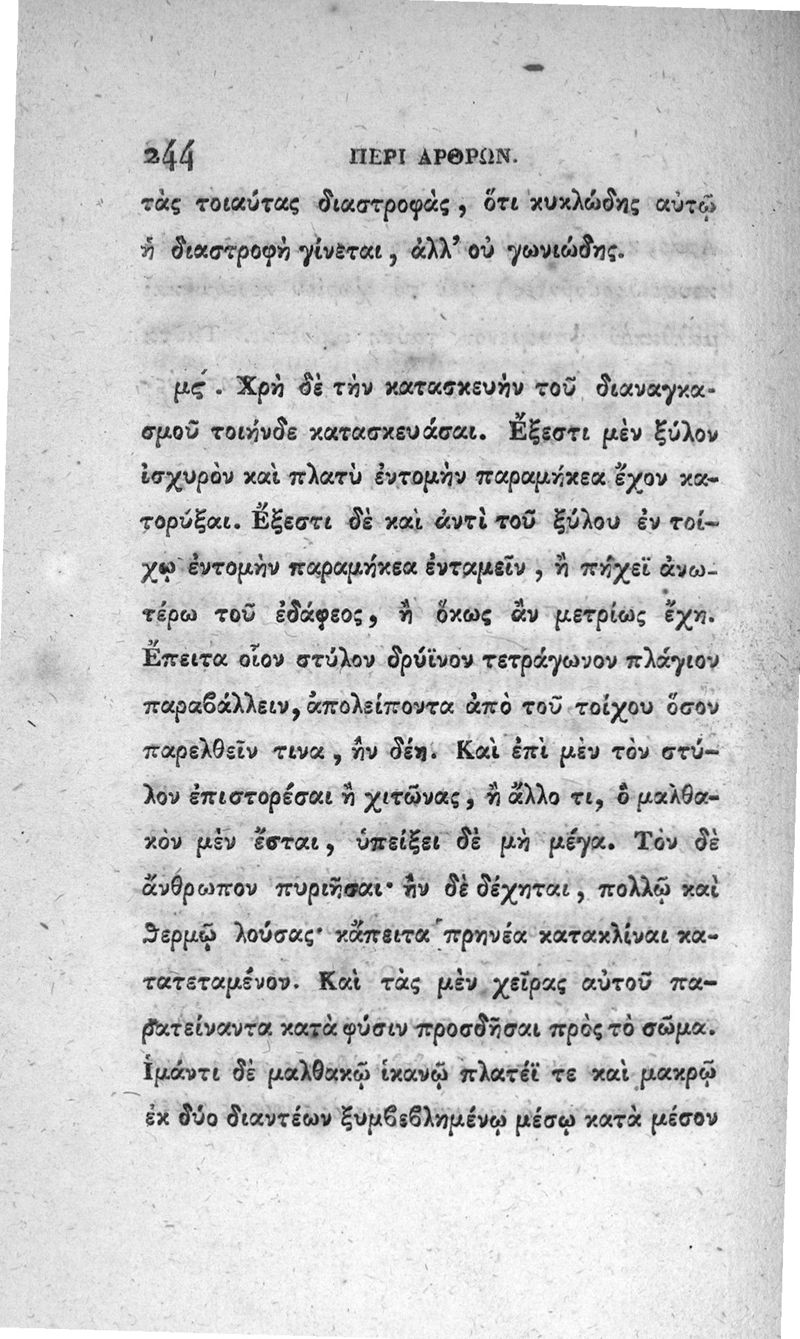 244 ΠΕΡΙ ΑΡΘΡΩΝ.
τὰς τοιαύτας διαστροφὰς, ὅτι κυκλώδης αὐτῷ
ἡ διαστροφὴ γίνεται, ἀλλ’ οὐ γωνιώδης.
μϛ´. Χρὴ δὲ τὴν κατασκευὴν τοῦ διαναγκα-
σμοῦ τοιήνδε κατασκευάσαι. Ἔξεστι μὲν ξύλον
ἰσχυρὸν καὶ πλατὺ ἐντομὴν παραμήκεα ἔχον κα-
τορύξαι. Ἔξεστι δὲ καὶ ἀντὶ τοῦ ξύλου ἐν τοί-
χῳ ἐντομὴν παραμήκεα ἐνταμεῖν, ἢ πήχεϊ ἀνω-
τέρω τοῦ ἐδάφεος, ἢ ὅκως ἂν μετρίως ἔχῃ.
Ἔπειτα οἷον στύλον δρύϊνον τετράγωνον πλάγιον
παραβάλλειν, ἀπολείποντα ἀπὸ τοῦ τοίχου ὅσον
παρελθεῖν τινα, ἢν δέῃ. Καὶ ἐπὶ μὲν τὸν στύ-
λον ἐπιστορέσαι ἢ χιτῶνας, ἢ ἄλλο τι, ὃ μαλθα-
κὸν μὲν ἔσται, ὑπείξει δὲ μὴ μέγα. Τὸν δὲ
ἄνθρωπον πυριῆσαι· ἢν δὲ δέχηται, πολλῷ καὶ
θερμῷ λούσας· κἄπειτα πρηνέα κατακλίναι κα-
τατεταμένον. Καὶ τὰς μὲν χεῖρας αὐτοῦ πα-
ρατείναντα κατὰ φύσιν προσδῆσαι πρὸς τὸ σῶμα.
Ἱμάντι δὲ μαλθακῷ ἱκανῷ πλατέϊ τε καὶ μακρῷ
ἐκ δύο διαντέων ξυμβεβλημένῳ μέσῳ κατὰ μέσον